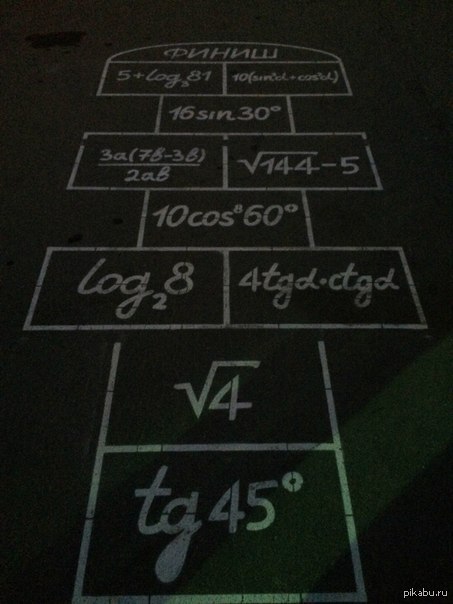 ФИНИШ
5+log₃81 10(sin²α+cos²α)
16sin30°
3a(7b-3b) √144-5
2ab
10cos⁸60°
log₂8 4tgα·ctgα
√4
tg45°
pikabu.ru